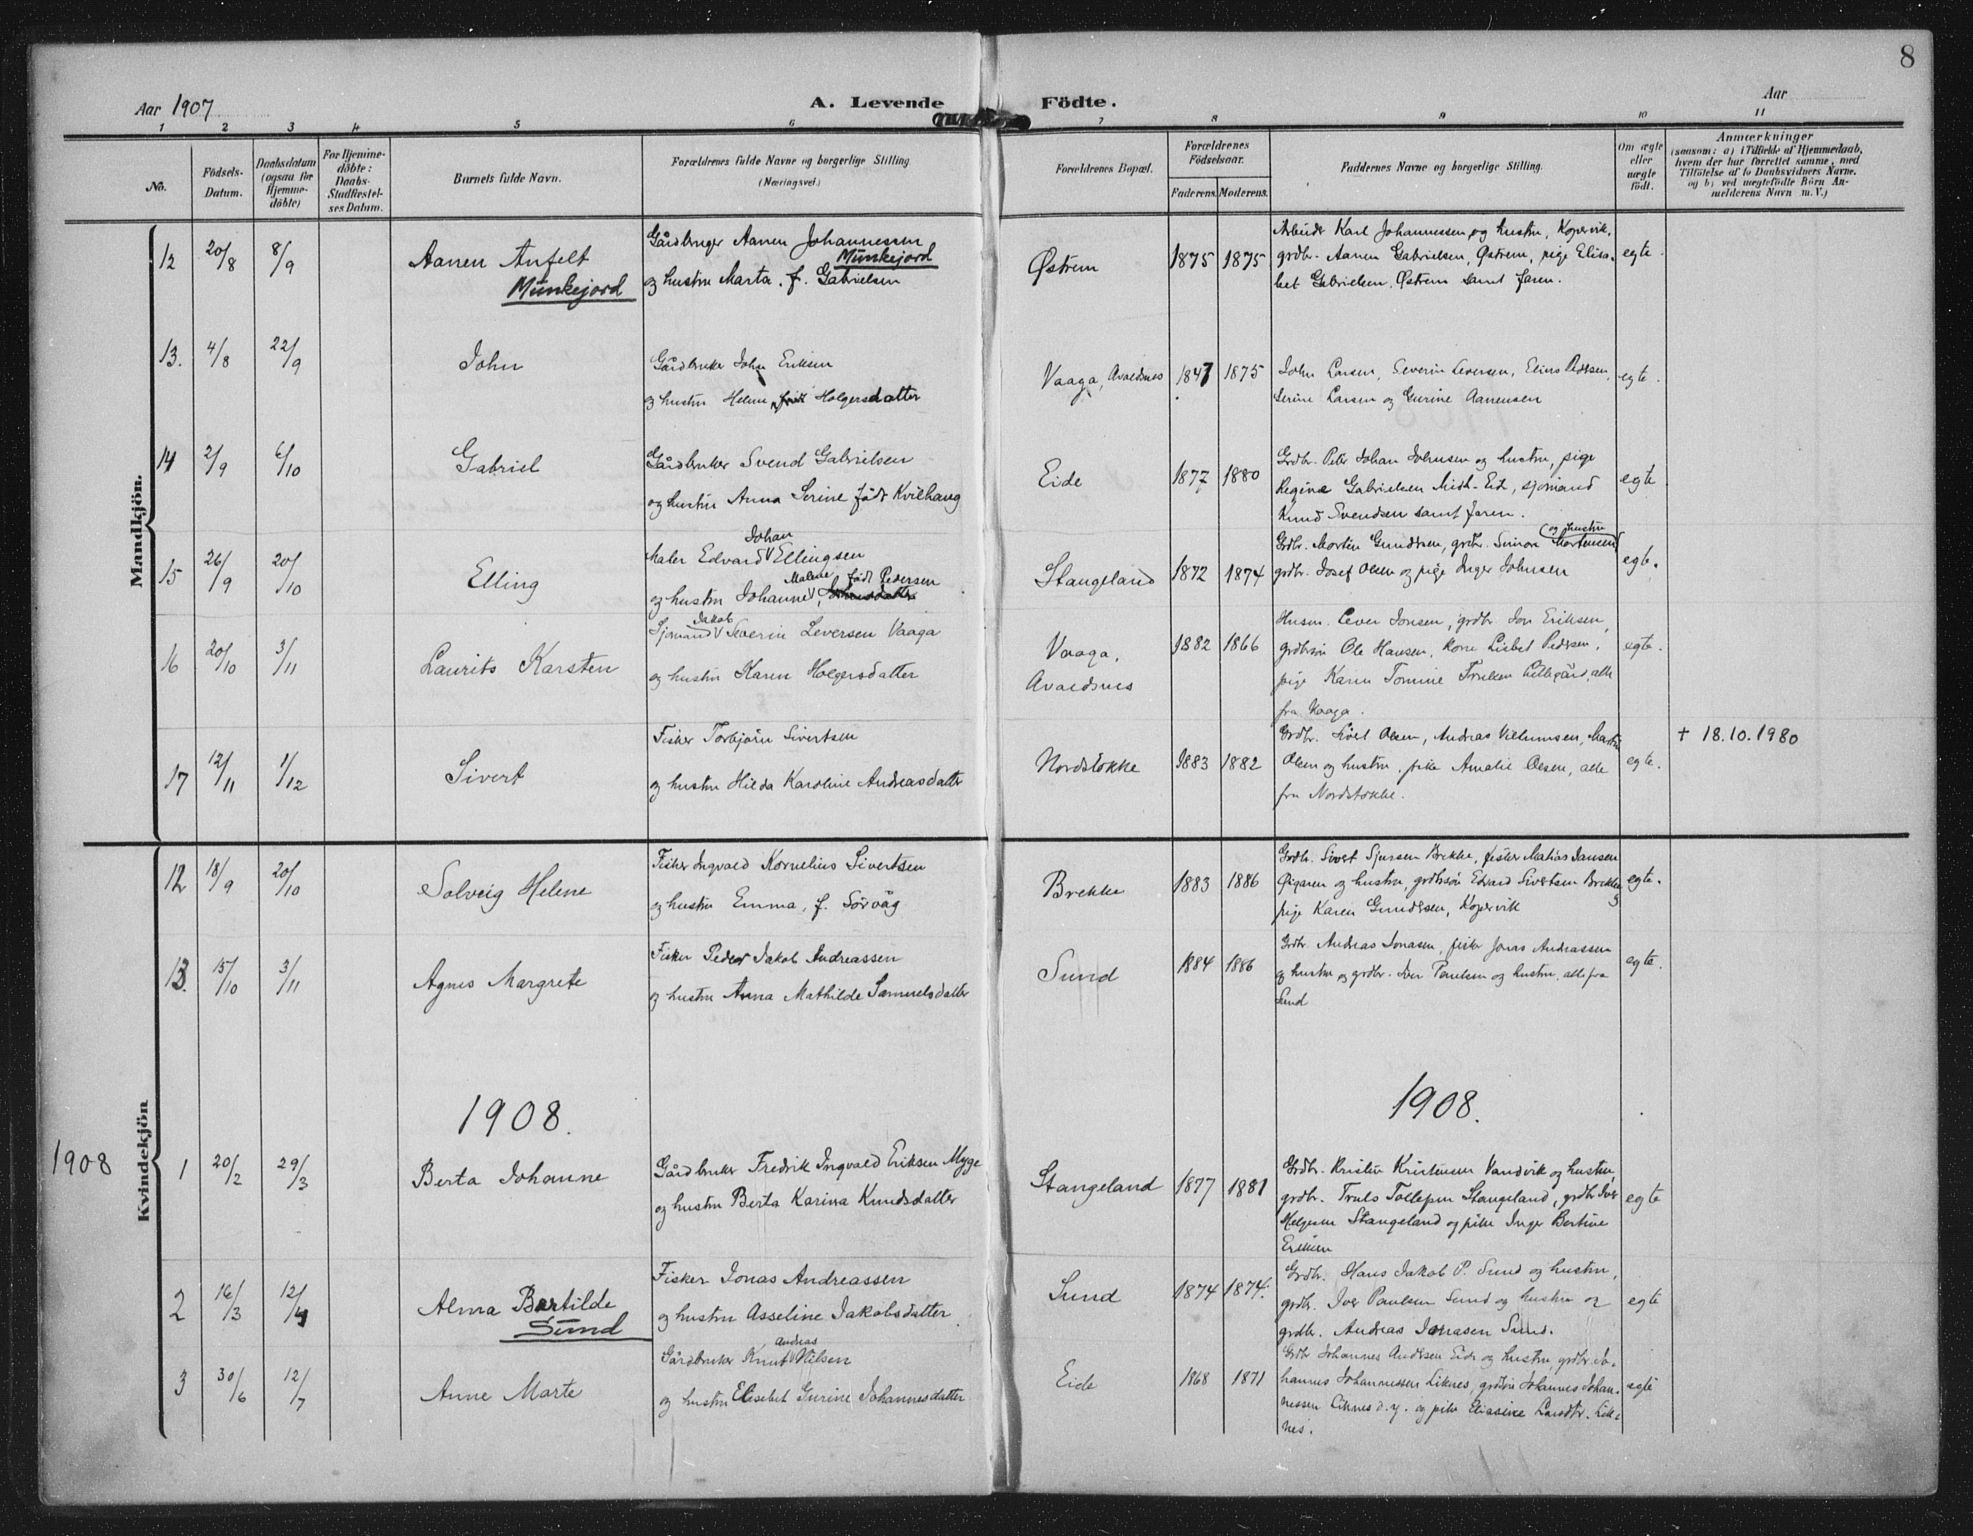 8
Aar 1907
A. Levende Födte.
Aar
1 2 3 4 5 6 7 8 9 10 11
No.
Födsels-Datum.
Daabsdatum (ogsaa for Hjemme-döbte)
For Hjemme-döbte: Daabs-Stadfæstel-ses Datum.
Barnets fulde Navn.
Forældrenes fulde Navne og borgerlige Stilling (Næringsvei.)
Forældrenes Bopæl.
Forældrenes Födselsaar.
Faderens. Moderens.
Faddernes Navne og borgerlige Stilling.
Om ægte eller uægte födt.
Anmærkninger
(saasom: a) i Tilfælde af Hjemmedaab, hvem der har forrettet samme, med Tilföielse af to Daabsvidners Navne, og b) ved uægtefödte Börn An-melderens Navn m. V.)
Mandkjön.
12 20/8 8/9 Aanen Anfelt Munkejord
Gårdbruger Aanen Johannessen Munkejord
og hustru Marta, f. Gabrielsen
Østrem 1875 1875
Arbeider Karl Johannessen og hustru, Kopervik,
grdbr. Aanen Gabrielsen, Østrem, pige Elisa-
bet Gabrielsen, Østrem samt faren.
egte.
13. 4/8 22/9 John
Gårdbruker John Eriksen
og hustru Helene Holgersdatter
Vaaga, Avaldsnes 1847 1875
John Larsen, Severin Leversen, Elias Pedersen,
Serine Larsen og Gurine Aanensen
egte.
14 2/9 6/10 Gabriel
Gårdbruker Svend Gabrielsen
og hustru Anna Serine født Kvilhaug
Eide 1877 1880
Grdbr. Peter Johan Johnsen og hustru, pige
Regine Gabrielsen Midt-Eide, sjømand
Knud Svendsen samt faren.
egte
15 26/9 20/10 Elling
Maler Edvard Johan Ellingsen
og hustru Johanne Malene, født Pedersen
Stangeland 1872 1874
Grdbr. Morten Gundersen, grdbr. Simon Mortensen og hustru
grdbr. Josef Olsen og pige Inger Johnsen
egte.
16 20/10 3/11 Laurits Karsten
Sjømand Jakob Severin Leversen Vaaga
og hustru Karen Holgersdatter
Vaaga, Avaldsnes 1882 1866
Husm. Lever Jonsen, grdbr. Jon Eriksen,
grdbrsøn Ole Hansen, kone Lisbet Pedersen,
pige Karen Tomine Lillegård, alle
fra Vaaga.
egte.
17 12/11 1/12 Sivert
Fisker Torbjørn Sivertsen
og hustru Hilda Karoline Andreasdatter
Nordstokke 1883 1882
Grdbr. Olsen, Andreas Villumsen, Martin
Olsen og hustru, pike Amalie Olsen, alle
fra Nordstokke.
egte.
† 18.10.1980
Kvindekjön
12 18/9 20/10 Solveig Helene
Fisker Ingvald Kornelius Sivertsen
og hustru Emma, f. Sørvåg
Brekke 1883 1886
Grdbr. Sivert Sjursen Brekke, fisker Matias Jansen
Øigaren og hustru, grdbrsøn Edvard Sivertsen Brekke og
pige Karen Gundersen, Kopervik
egte.
13. 15/10 3/11 Agnes Margrete
Fisker Peder Jakob Andreassen
og hustru Anna Mathilde Samuelsdatter
Sund 1884 1886
Grdbr. Andreas Jonasen, fisker Jonas Andreassen
og hustru og grdbr. Iver Paulsen og hustru, alle fra
Sund
egte.
1908. 1908.
1908
1 20/2 29/3 Berta Johanne
Gårdbruker Fredrik Ingvald Eriksen Myge
og hustru Berta Karina Knudsdatter
Stangeland 1877 1881
Grdbr. Kristen Kristensen Vandvik og hustru,
grdbr. Truls Tollefsen Stangeland, grdbr Iver
Helgesen Stangeland og pike Inger Bertine
Eriksen
egte
2 16/3 12/4 Alma Bertilde Sund
Fisker Jonas Andreassen
og hustru Asseline Jakobsdatter.
Sund 1874 1874.
Grdbr. Hans Jakob P. Sund og hustru,
grdbr. Iver Paulsen Sund og hustru og
grdbr. Andreas Jonasen Sund.
egte
3 30/6 12/7 Anne Marte
Gårdbruker Knut Andreas Nilsen
og hustru Elisebet Gurine Johannesdatter
Eide 1868 1871
Grdbr Johannes Andersen Eide og hustru, grdbr. Jo-
hannes Johannessen Liknes, grdbrsøn Johannes Johan-
nessen Liknes d.y. og pike Eliasine Larsdtr. Lik-
nes.
egte